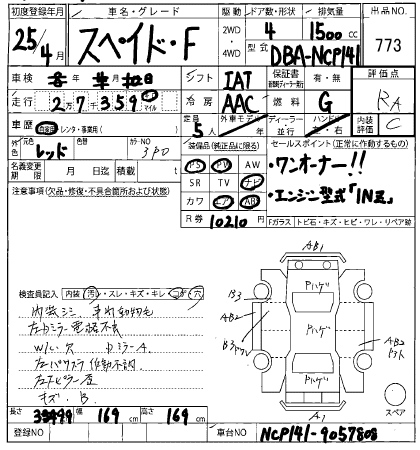 初度登録年月 車名・グレード 駆動 ドア数・形状 排気量 出品NO.
25/4月 スペイド・F 2WD・4WD 4 1500cc 773
型式 DBA-NCP141
車検 年 月 日 シフト IAT 保証書 有・無 評価点
走行 27359 km マイル 冷房 AAC 燃料 G RA
車歴 自家用 レンタ・事業用( ) 定員 5人 外車モデル ディーラー・並行 ハンドル 右・左 内装評価 C
外色 元色 レッド 色替 カラーNO 3P0 装備品(純正品に限る) セールスポイント(正常に作動するもの)
名義変更期限 月 日迄 積載量 t PS PW AW ・ワンオーナー!!
注意事項(欠品・修復・不具合箇所および状態) SR TV ナビ ・エンジン型式「INZ」
カワ エアB ABS
R券 10210円 Fガラス トビ石・キズ・ヒビ・ワレ・リペア跡
AB1
検査員記入 内装(汚)・スレ・キズ・キレ・コゲ・穴
内装シミ
左ドミラー電格不良
W/い穴 ドミラーA
左パワスラ作動不調
キズ、B
Pハゲ
B3
AB2
Pハゲ
AB2
Pハゲ
A1
スペア
長さ cm 幅 169cm 高さ 169cm
登録NO 車台NO NCP141-9057808